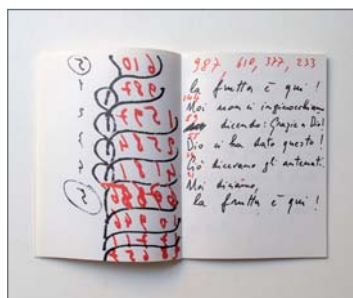 610
987
1597
2584
4181
987, 610, 377, 233
la frutta è qui!
144
Noi non ci inginocchiamo
89
dicendo: Grazie a Dio!
55
Dio ci ha dato questo!
Ciò dicevano gli antenati.
Noi diciamo,
la frutta è qui!